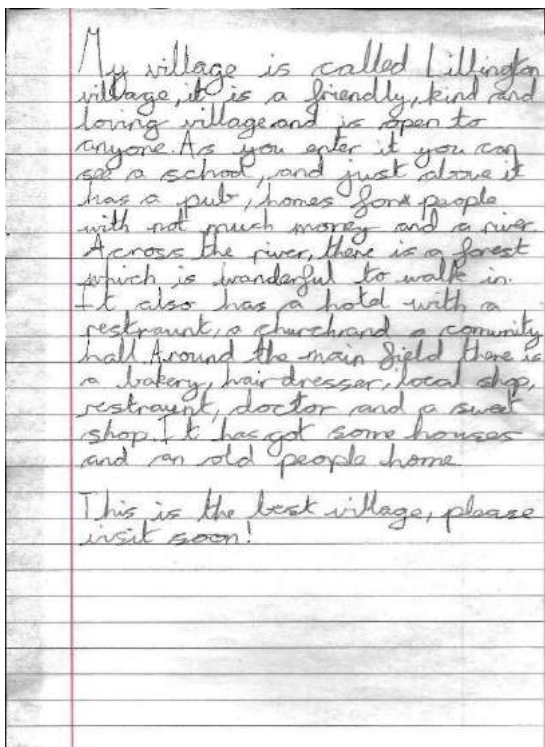 My village is called Lillington
village, it is a friendly, kind and
loving village and is open to
anyone. As you enter it you can
see a school, and just above it
has a pub, homes for people
with not much money and a river.
Across the river, there is a forest
which is wanderful to walk in.
It also has a hotel with a
restraunt, a church and a comunity
hall. Around the main field there is
a bakery, hairdresser, local shop,
restraunt, doctor and a sweet
shop. It has got some houses
and an old people home
This is the best village, please
visit soon!